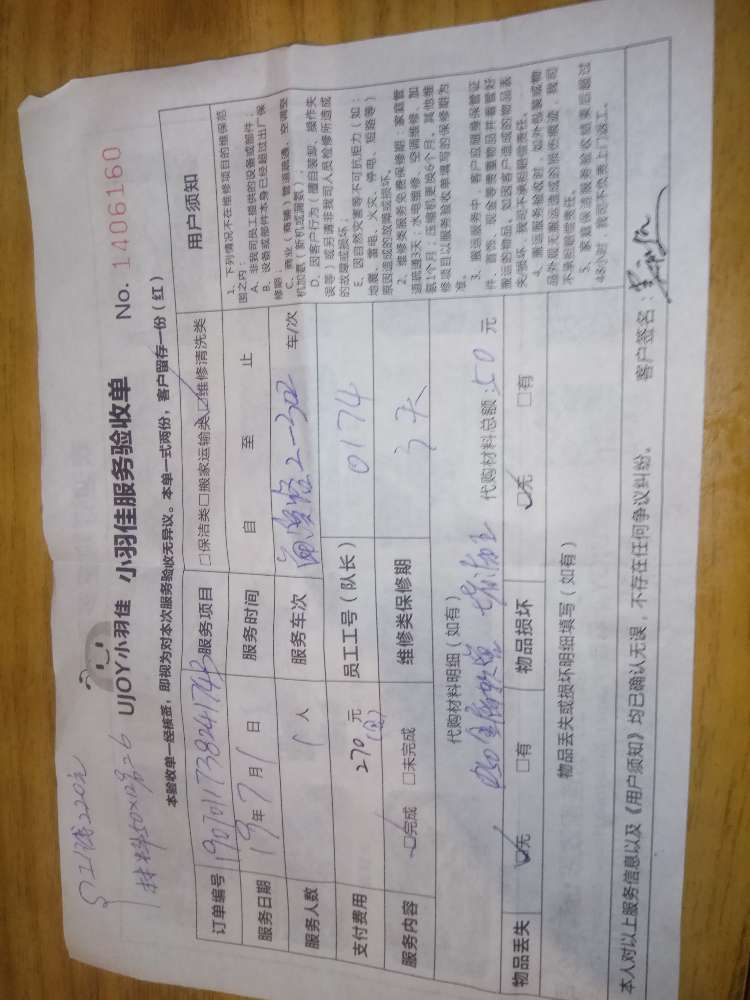 工钱220元
材料50
UJOY小羽佳 小羽佳服务验收单 No. 1406160
本验收单一经核签，即视为对本次服务验收无异议。本单一式两份，客户留存一份（红）
订单编号 服务项目 □保洁类 □搬家运输类 ☑维修清洗类
服务日期 19年7月1日 服务时间 自 至 止
服务人数 1人 服务车次 2-302 车/次
支付费用 270元 员工工号（队长） 0174
服务内容 ☑完成 □未完成 维修类保修期 3天
代购材料明细（如有）
代购材料总额：50元
物品丢失 ☑无 □有 物品损坏 ☑无 □有
物品丢失或损坏明细填写（如有）
用户须知
1、下列情况不在维修项目的维保范
围之内：
A、非我司员工提供的设备或部件；
B、设备或部件本身已经超过出厂保
修期；
C、商业（商铺）管道疏通、空调整
机加氟（新机或漏氟）；
D、因客户行为（擅自装卸、操作失
误等）或另请非我司人员检修所造成
的故障或损坏；
E、因自然灾害等不可抗拒力（如：
地震、雷电、火灾、停电、短路等）
原因造成的故障或损坏。
2、维修类服务免费保修期：家庭管
道疏通3天；水电维修、空调维修、加
氟1个月；压缩机更换6个月。其他维
修项目以服务验收单填写的保修期为
准。
3、搬运服务中，客户应随身保管证
件、首饰、现金等贵重物品并看管好
搬运的物品。如因客户造成的物品丢
失/损坏，我司不承担赔偿责任。
4、搬运服务验收时，如外包装或物
品外观无搬运造成的损伤痕迹，我司
不承担赔偿责任。
5、家庭保洁服务验收结束后超过
48小时，我司不负责上门返工。
本人对以上服务信息以及《用户须知》均已确认无误，不存在任何争议纠纷。 客户签名：